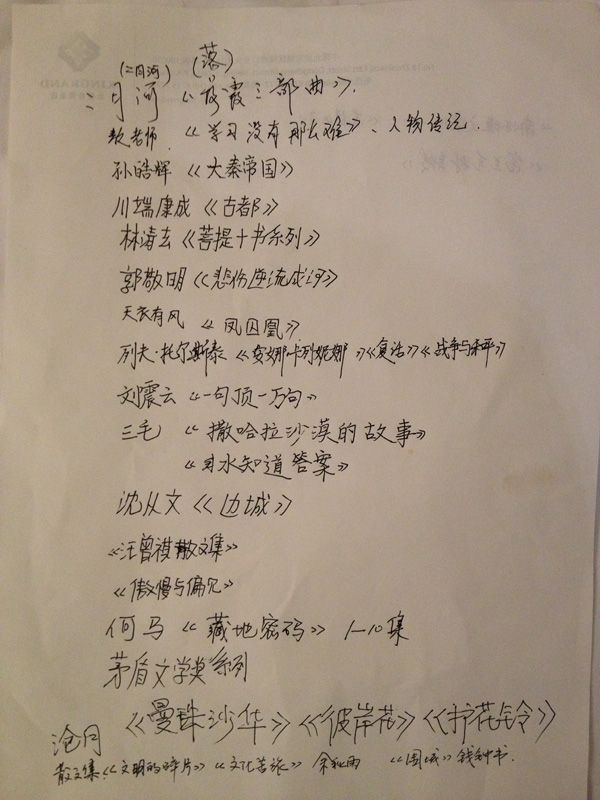 (二月河) (落)
二月河《落霞三部曲》.
老师《学习没有那么难》、人物传记.
孙皓辉《大秦帝国》
川端康成《古都》
林清玄《菩提十书系列》
郭敬明《悲伤逆流成河》
天衣有风《凤囚凰》
列夫·托尔斯泰《安娜卡列妮娜》《复活》《战争与和平》
刘震云《一句顶一万句》
三毛《撒哈拉沙漠的故事》
《水知道答案》
沈从文《边城》
《汪曾祺散文集》
《傲慢与偏见》
何马《藏地密码》1-10集
茅盾文学奖系列
沧月《曼珠沙华》《彼岸花》《护花铃》
散文集《文明的碎片》《文化苦旅》余秋雨《围城》钱钟书.